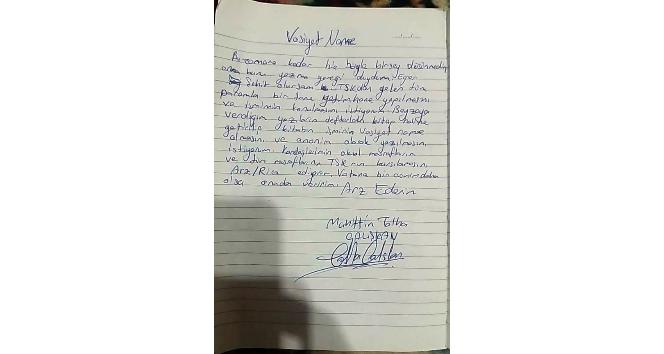 Vasiyet Name
Bu zamana kadar hiç böyle birşey düşünmedim
ama bunu yazma gereği duydum. Eğer
Şehit olursam TSKdan gelen tüm
paramla bir tane yetimhane yapılmasını
ve ismimin konulmasını istiyorum. Beyzaya
verdiğim yazıların defterleri kitap haline
getirilip kitabın isminin vasiyet name
olmasını ve anonim olarak yazılmasını
istiyorum. Kardeşlerimin okul masraflarını
ve tüm masraflarını TSK'nın karşılamasını
Arz/Rica ediyorum. Vatana bin canım daha
olsa onuda veririm. Arz Ederim
Muhittin Talha
ÇALIŞKAN